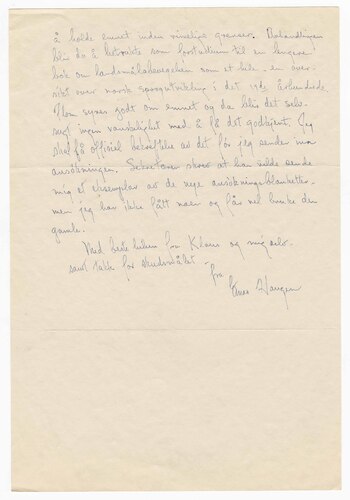 å holde emnet inden rimelige grenser. Behandlingen
blir da å betrakte som forstudium til en lengere
bok om landsmålsbevegelsen som et hele - en over-
sikt over norsk sprogutvikling i det 19de århundrede.
Flom synes godt om emnet og da blir det selv-
sagt ingen vanskelighet med å få det godkjent. Jeg
skal få officiel bekreftelse av det før jeg sender min
ansökningen. Sekretæren skrev at han vilde sende
mig et eksemplar av de nye ansökningsblanketter,
men jeg har ikke fått noen og får vel bruke den
gamle.
Med beste hilsen fra og mig selv
samt takk for skudsmålet -
fra
Einar Haugen